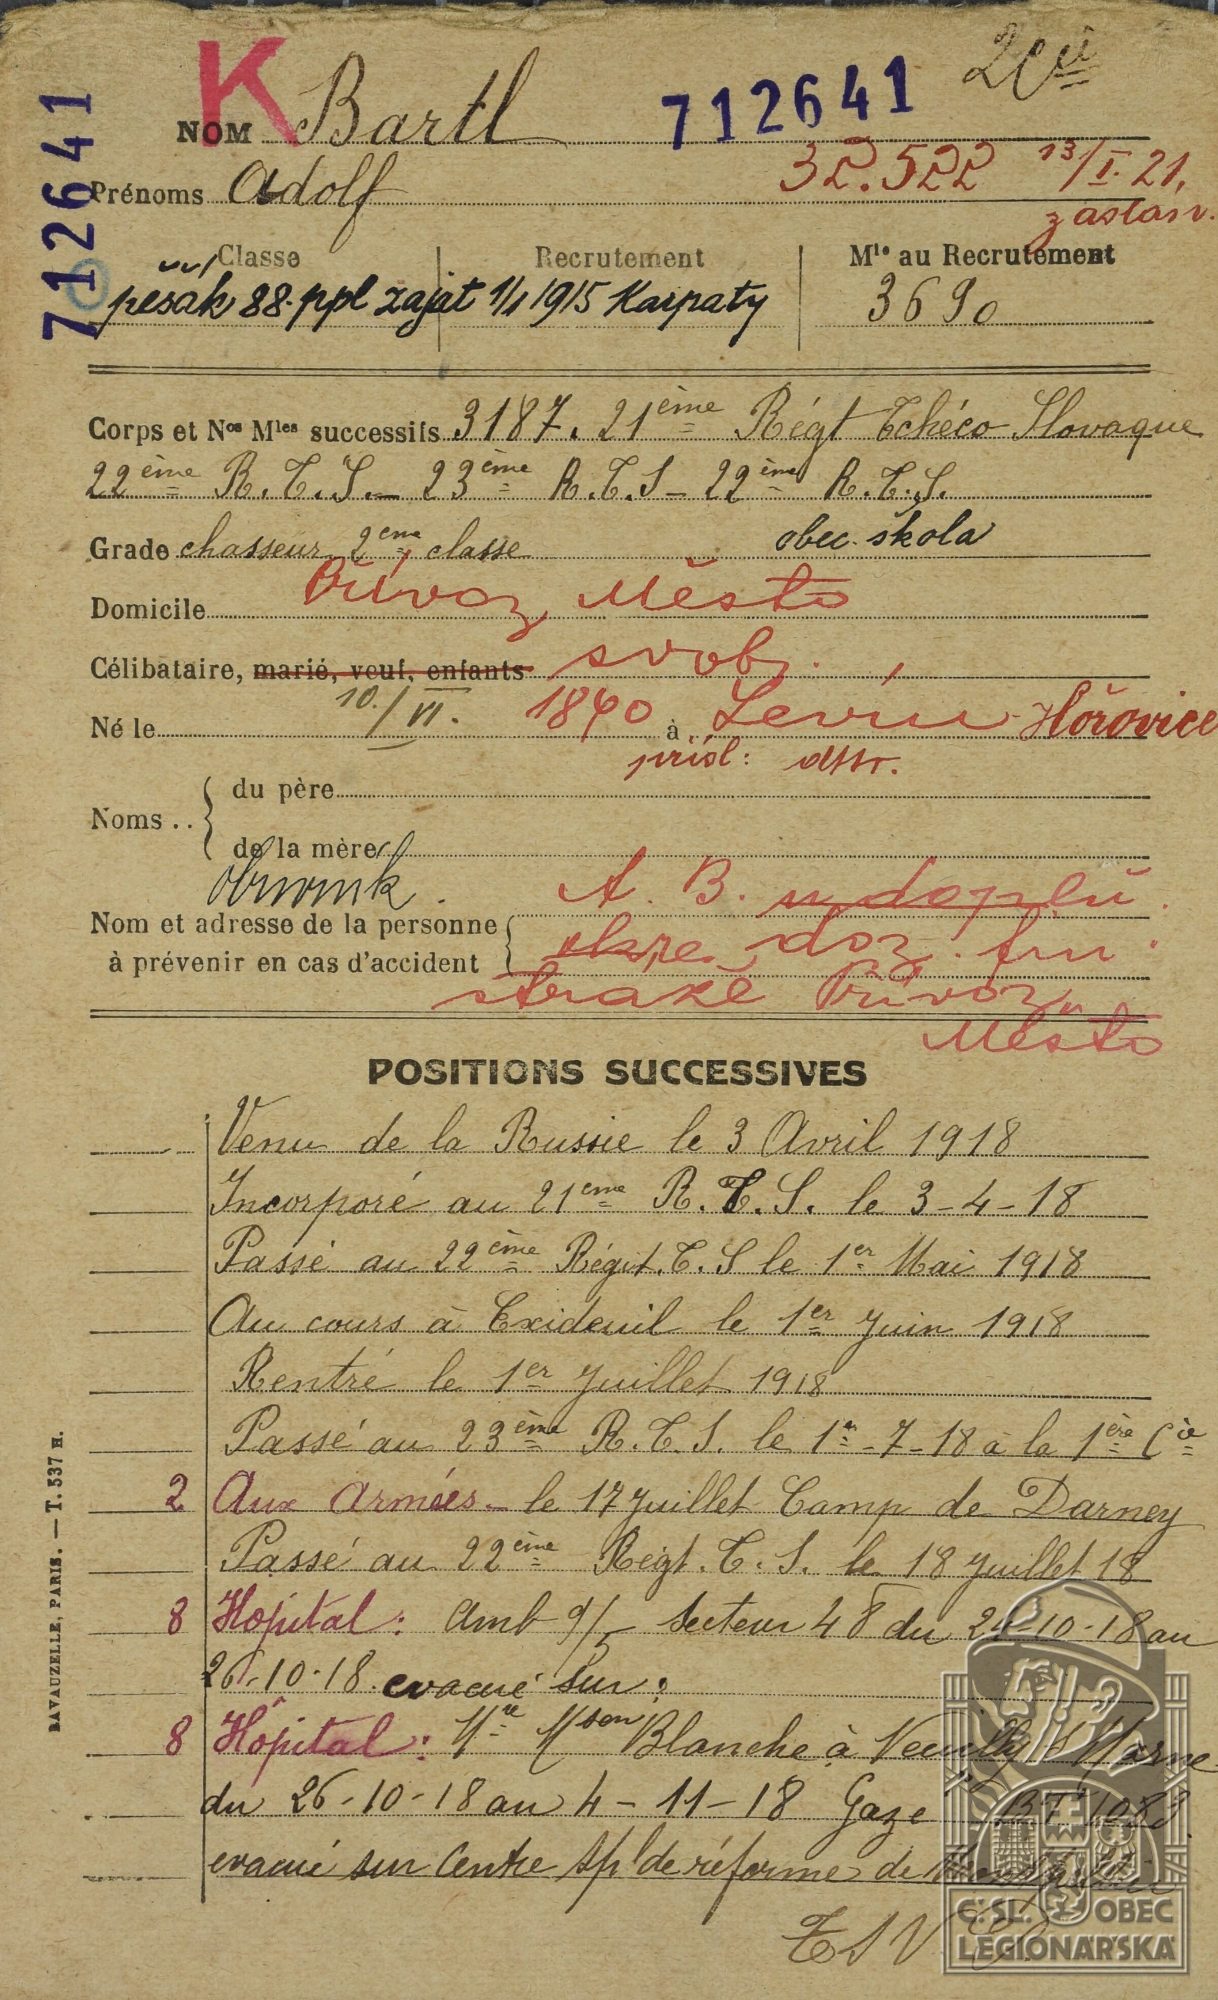 K
712641
712641
NOM Bartl
32.522 13/I.21.
Prénoms Adolf
Classe Recrutement Mle au Recrutement
pěšák 88. ppl zajat 1/1 1915 Karpaty 3690
Corps et Nos Mles successifs 3187. 21ème Régt Tchéco Slovaque
22ème R.T.S. - 23ème R.T.S - 22ème R.T.S.
Grade chasseur 2eme classe obec. škola
Domicile Přívoz, Město
Célibataire, marié, veuf, enfants svob.
Né le 10./VI. 1890 à Levín - Hořovice
přísl:
Noms .. du père
de la mère
obuvník.
Nom et adresse de la personne A. B.
à prévenir en cas d'accident
Přívoz
Město
POSITIONS SUCCESSIVES
Venu de la Russie le 3 Avril 1918
Incorporé au 21eme R.T.S. le 3-4-18
Passé au 22ème Régt.T.S le 1er Mai 1918
Au cours à Exideuil le 1er Juin 1918
Rentré le 1er Juillet 1918
Passé au 23ème R.T.S. le 1er-7-18 à la 1ère Cie
2 Aux Armées - le 17 Juillet Camp de Darney
Passé au 22ème Régt.T.S. le 18 Juillet 18
8 Hôpital: Amb 9/5 Secteur 48 du 24-10-18 au
26-10-18 evacué sur:
8 Hôpital: Blanche à Neuilly s/Marne
du 26-10-18 au 4-11-18 Gazé
evacué sur Centre Spl de réforme de
BAVAUZELLE, PARIS. — T. 537 H.
Č.SL. OBEC
LEGIONÁŘSKÁ